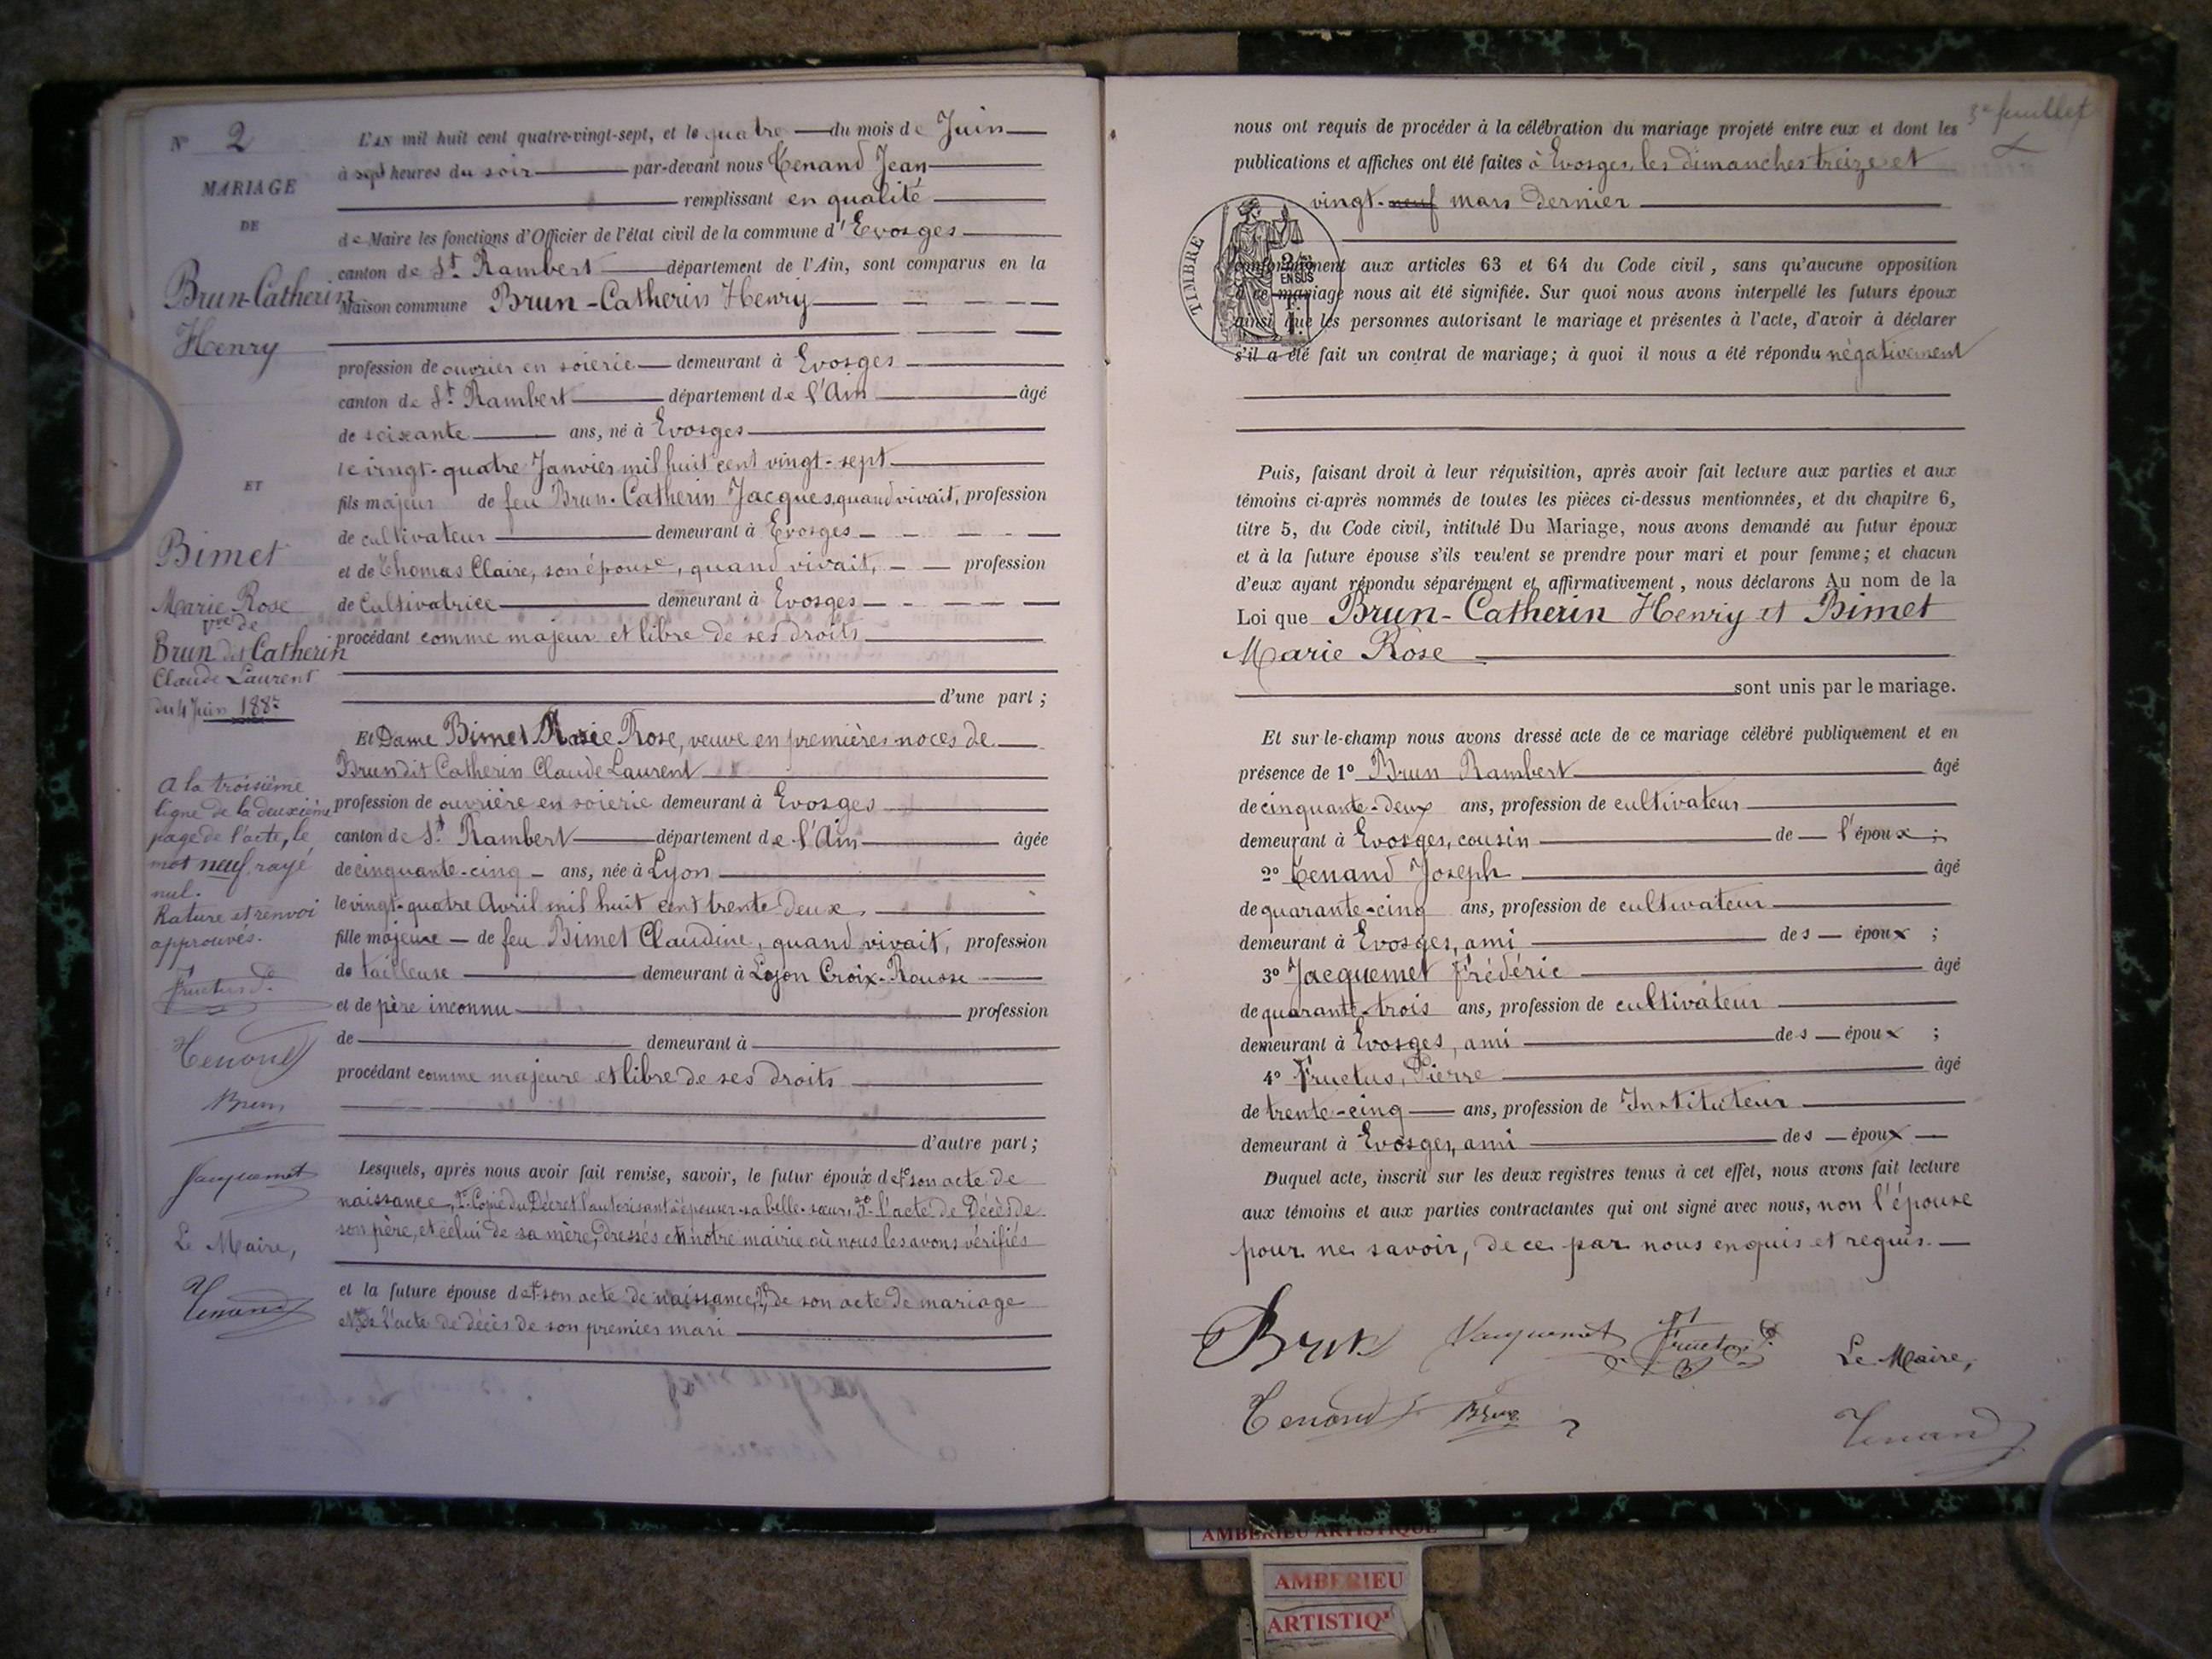 N° 2
MARIAGE
DE
Brun-Catherin
Henry
ET
Bimet
Marie Rose
vve de
Brun dit Catherin
Claude Laurent
du 4 Juin 1887
A la troisième
ligne de la deuxième
page de l'acte, le
mot neuf rayé
nul.
Rature et renvoi
approuvés.
Fructus
Tenand
Brun
Jacquemet
Le Maire,
Tenand
L'AN mil huit cent quatre-vingt-sept, et le quatre du mois de Juin
à sept heures du soir par-devant nous Tenand Jean
remplissant en qualité
de Maire les fonctions d'Officier de l'état civil de la commune d'Evosges
canton de St Rambert département de l'Ain, sont comparus en la
Maison commune Brun-Catherin Henry
profession de ouvrier en soierie demeurant à Evosges
canton de St Rambert département de l'Ain âgé
de soixante ans, né à Evosges
le vingt-quatre Janvier mil huit cent vingt-sept
fils majeur de feu Brun-Catherin Jacques, quand vivait, profession
de cultivateur demeurant à Evosges
et de Thomas Claire, son épouse, quand vivait, profession
de Cultivatrice demeurant à Evosges
procédant comme majeur et libre de ses droits
d'une part ;
Et Dame Bimet Marie Rose, veuve en premières noces de
Brun dit Catherin Claude Laurent
profession de ouvrière en soierie demeurant à Evosges
canton de St Rambert département de l'Ain âgée
de cinquante-cinq ans, née à Lyon
le vingt-quatre Avril mil huit cent trente-deux,
fille majeure de feu Bimet Claudine, quand vivait, profession
de tailleuse demeurant à Lyon Croix-Rousse
et de père inconnu profession
de demeurant à
procédant comme majeure et libre de ses droits
d'autre part ;
Lesquels, après nous avoir fait remise, savoir, le futur époux de 1° son acte de
naissance, 2° Copie du Décret l'autorisant à épouser sa belle-sœur, 3° l'acte de Décès de
son père, et celui de sa mère, dressés en notre mairie où nous les avons vérifiés
et la future épouse de 1° son acte de naissance, 2° de son acte de mariage
et 3° de l'acte de décès de son premier mari
3e feuillet
nous ont requis de procéder à la célébration du mariage projeté entre eux et dont les
publications et affiches ont été faites à Evosges, les dimanches treize et
vingt-neuf mars dernier
TIMBRE
EN SUS
conformément aux articles 63 et 64 du Code civil, sans qu'aucune opposition
à ce mariage nous ait été signifiée. Sur quoi nous avons interpellé les futurs époux
ainsi que les personnes autorisant le mariage et présentes à l'acte, d'avoir à déclarer
s'il a été fait un contrat de mariage; à quoi il nous a été répondu négativement
Puis, faisant droit à leur réquisition, après avoir fait lecture aux parties et aux
témoins ci-après nommés de toutes les pièces ci-dessus mentionnées, et du chapitre 6,
titre 5, du Code civil, intitulé Du Mariage, nous avons demandé au futur époux
et à la future épouse s'ils veulent se prendre pour mari et pour femme; et chacun
d'eux ayant répondu séparément et affirmativement, nous déclarons Au nom de la
Loi que Brun-Catherin Henry et Bimet
Marie Rose
sont unis par le mariage.
Et sur-le-champ nous avons dressé acte de ce mariage célébré publiquement et en
présence de 1° Brun Rambert âgé
de cinquante-deux ans, profession de cultivateur
demeurant à Evosges, cousin de l'époux ;
2° Tenand Joseph âgé
de quarante-cinq ans, profession de cultivateur
demeurant à Evosges, ami des époux ;
3° Jacquemet Frédéric âgé
de quarante-trois ans, profession de cultivateur
demeurant à Evosges, ami des époux ;
4° Fructus, Pierre âgé
de trente-cinq ans, profession de Instituteur
demeurant à Evosges, ami des époux
Duquel acte, inscrit sur les deux registres tenus à cet effet, nous avons fait lecture
aux témoins et aux parties contractantes qui ont signé avec nous, non l'épouse
pour ne savoir, de ce par nous enquis et requis.
Brun Jacquemet Fructus
Le Maire,
Tenand Brun
Tenand
AMBERIEU ARTISTIQUE
AMBERIEU
ARTISTIQ